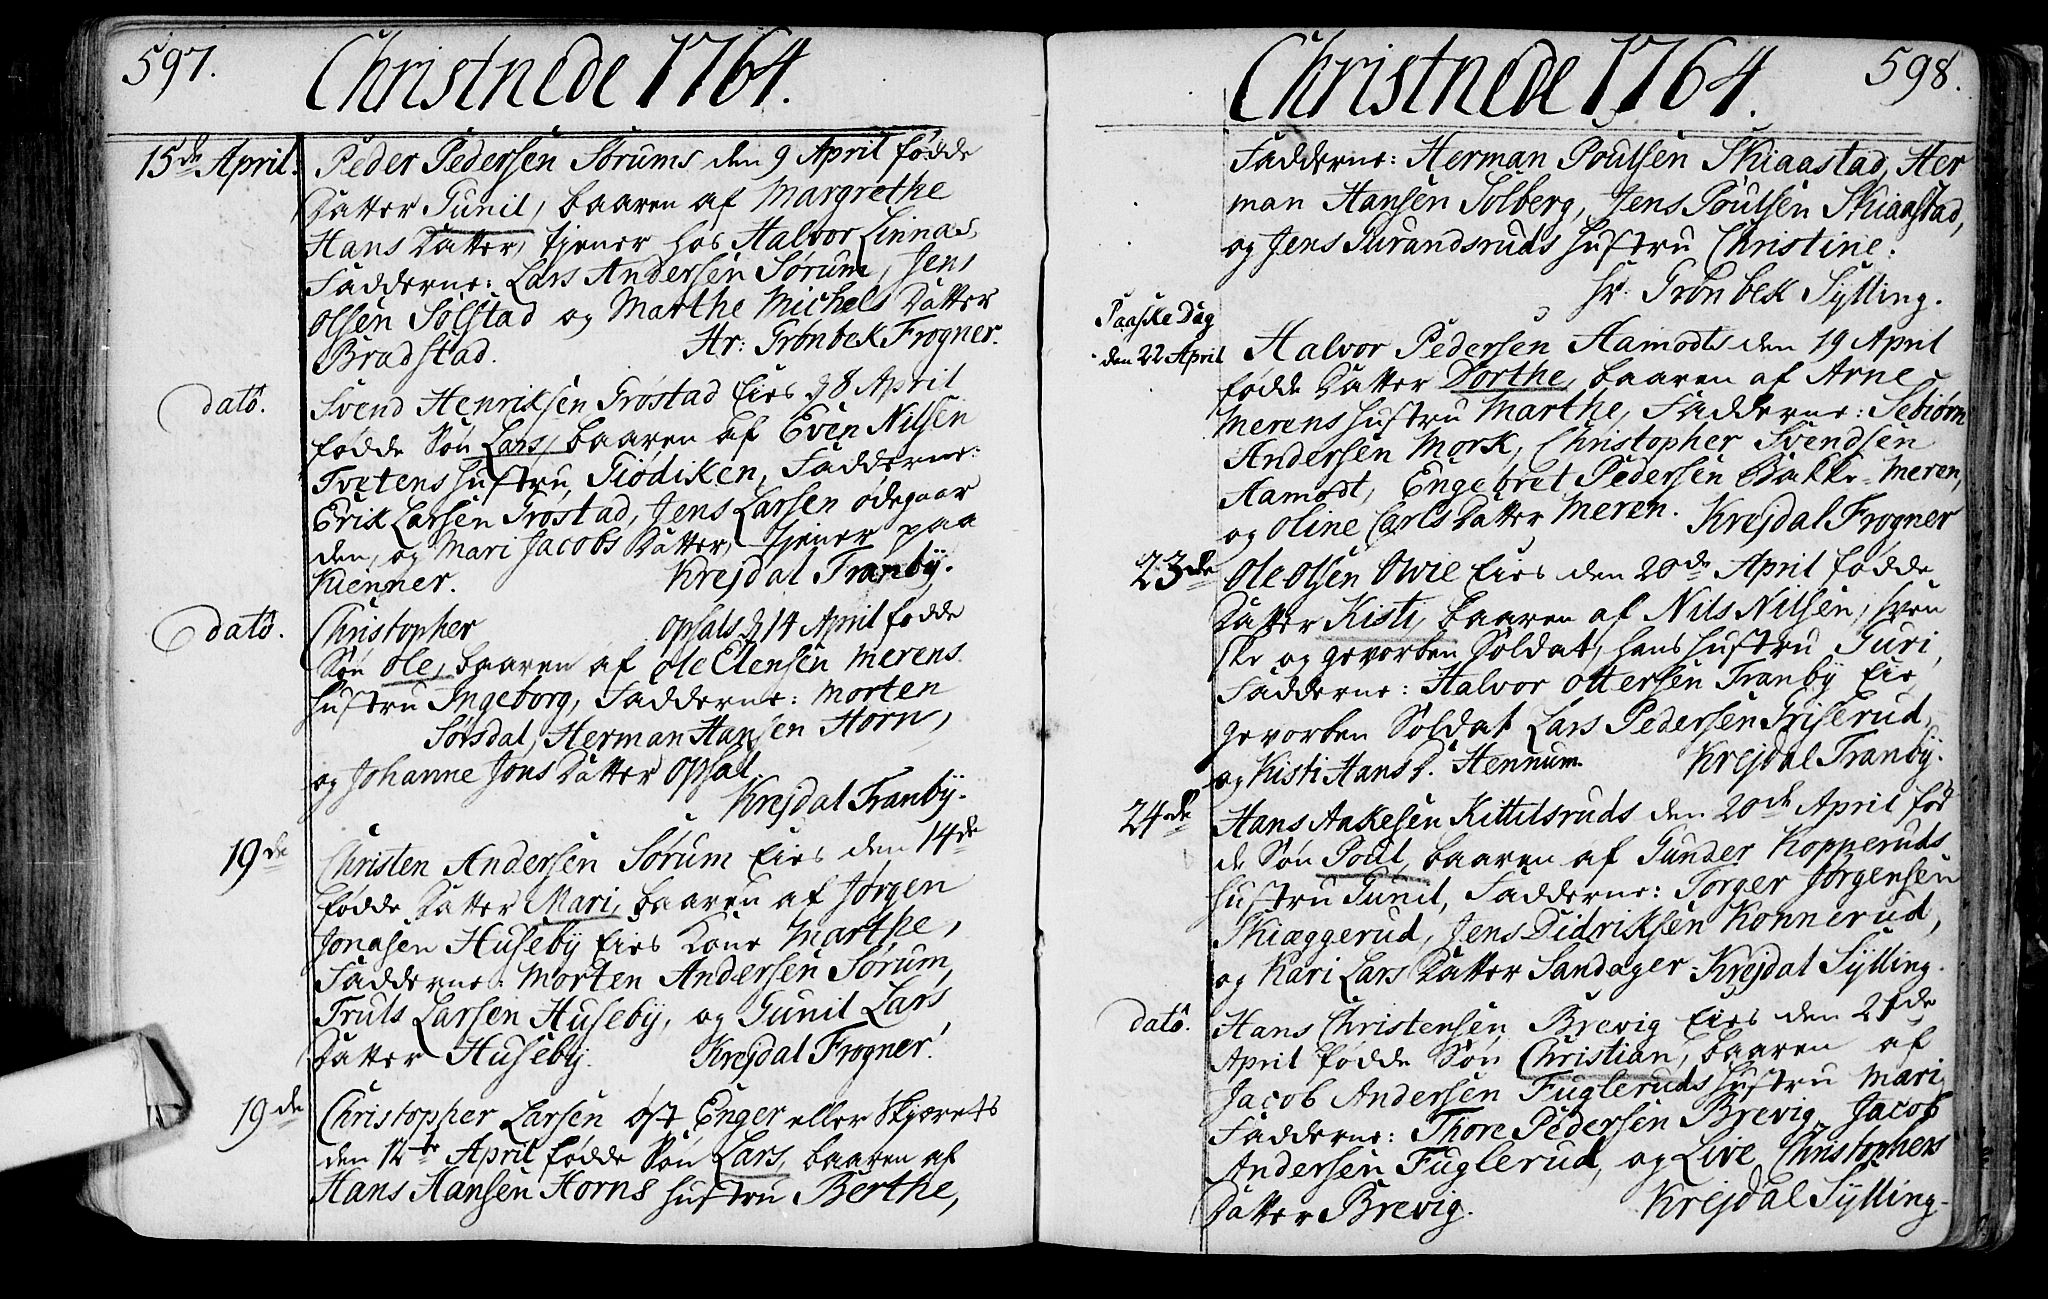 597.
Christnede 1764.
15de April. Peder Pedersen Sørums den 9 April fødde
Datter Gunil, baaren af Margrethe
Hans Datter, tjener hos Halvor Linnas,
Fadderne: Lars Andersen Sørum, Jens
Olsen Solstad og Marthe Michels Datter
Bradstad. Hr: Grønbek Frogner.
dato. Svend Henriksen Grøstad Eies d 8 April
fødde Søn Lars, baaren af Even Nilsen
Tvetens Hustru Giødiken, Fadderne:
Erik Larsen Grøstad, Jens Larsen Ødegaar
den, og Mari Jacobs Datter, tjener paa
Kienner. Krejdal Tranbÿ.
dato. Christopher Opsals d 14 April fødde
Søn Ole, baaren af Ole Elensen Merens
Hustru Ingeborg, Fadderne: Morten
Sørsdal, Herman Hansen Horn,
og Johanne Jons Datter Opsal
Krejdal Tranbÿ.
19de Christen Andersen Sørum Eies den 14de
fødde Datter Mari, baaren af Jørgen
Jonasen Husebÿ Eies Kone Marthe,
Fadderne: Morten Andersen Sørum,
Truls Larsen Husebÿ, og Gunil Lars
Datter Husebÿ. Krejdal Frogner.
19de Christopher Larsen Øst Enger eller Skjærets
den 12te April fødde Søn Lars, baaren af
Hans Hansen Horns Hustru Berthe,
598.
Christnede 1764.
Fadderne: Herman Poulsen Skiaastad, Her
man Hansen Solberg, Jens Poulsen Skiaastad,
og Jens Gurandsruds Hustru Christine.
Hr: Grønbek Sÿlling.
Paaske Dag
den 22 April Halvor Pedersen Aamodts den 19 April
fødde Datter Dorthe, baaren af Arne
Merens Hustru Marthe, Fadderne: Sebiørn
Andersen Mork, Christopher Svendsen
Aamodt, Engebret Pedersen Bakke-Meren,
og Oline Carls Datter Meren. Krejdal Frogner
23de Ole Olsen Ovie Eies den 20de April fødde
Datter Kisti, baaren af Nils Nilsen, sven
ske og gevorben Soldat, hans Hustru Guri,
Fadderne: Halvor Ottersen Tranby Eie,
gevorben Soldat Lars Pedersen Griserud,
og Kisti Hans D. Hennum. Krejdal Tranbÿ.
24de Hans Aakesen Kittilsruds den 20de April fød
de Søn Poul, baaren af Gunder Kopperuds
Hustru Gunil, Fadderne: Torger Jørgensen
Skiæggerud, Jens Didriksen Konnerud,
og Kari Lars Datter Sandager Krejdal Sÿlling.
dato. Hans Christensen Brevig Eies den 21de
April fødde Søn Christian, baaren af
Jacob Andersen Fugleruds Hustru Mari
Fadderne: Thore Pedersen Brevig, Jacob
Andersen Fuglerud, og Live Christophers
Datter Brevig. Krejdal Sÿlling.